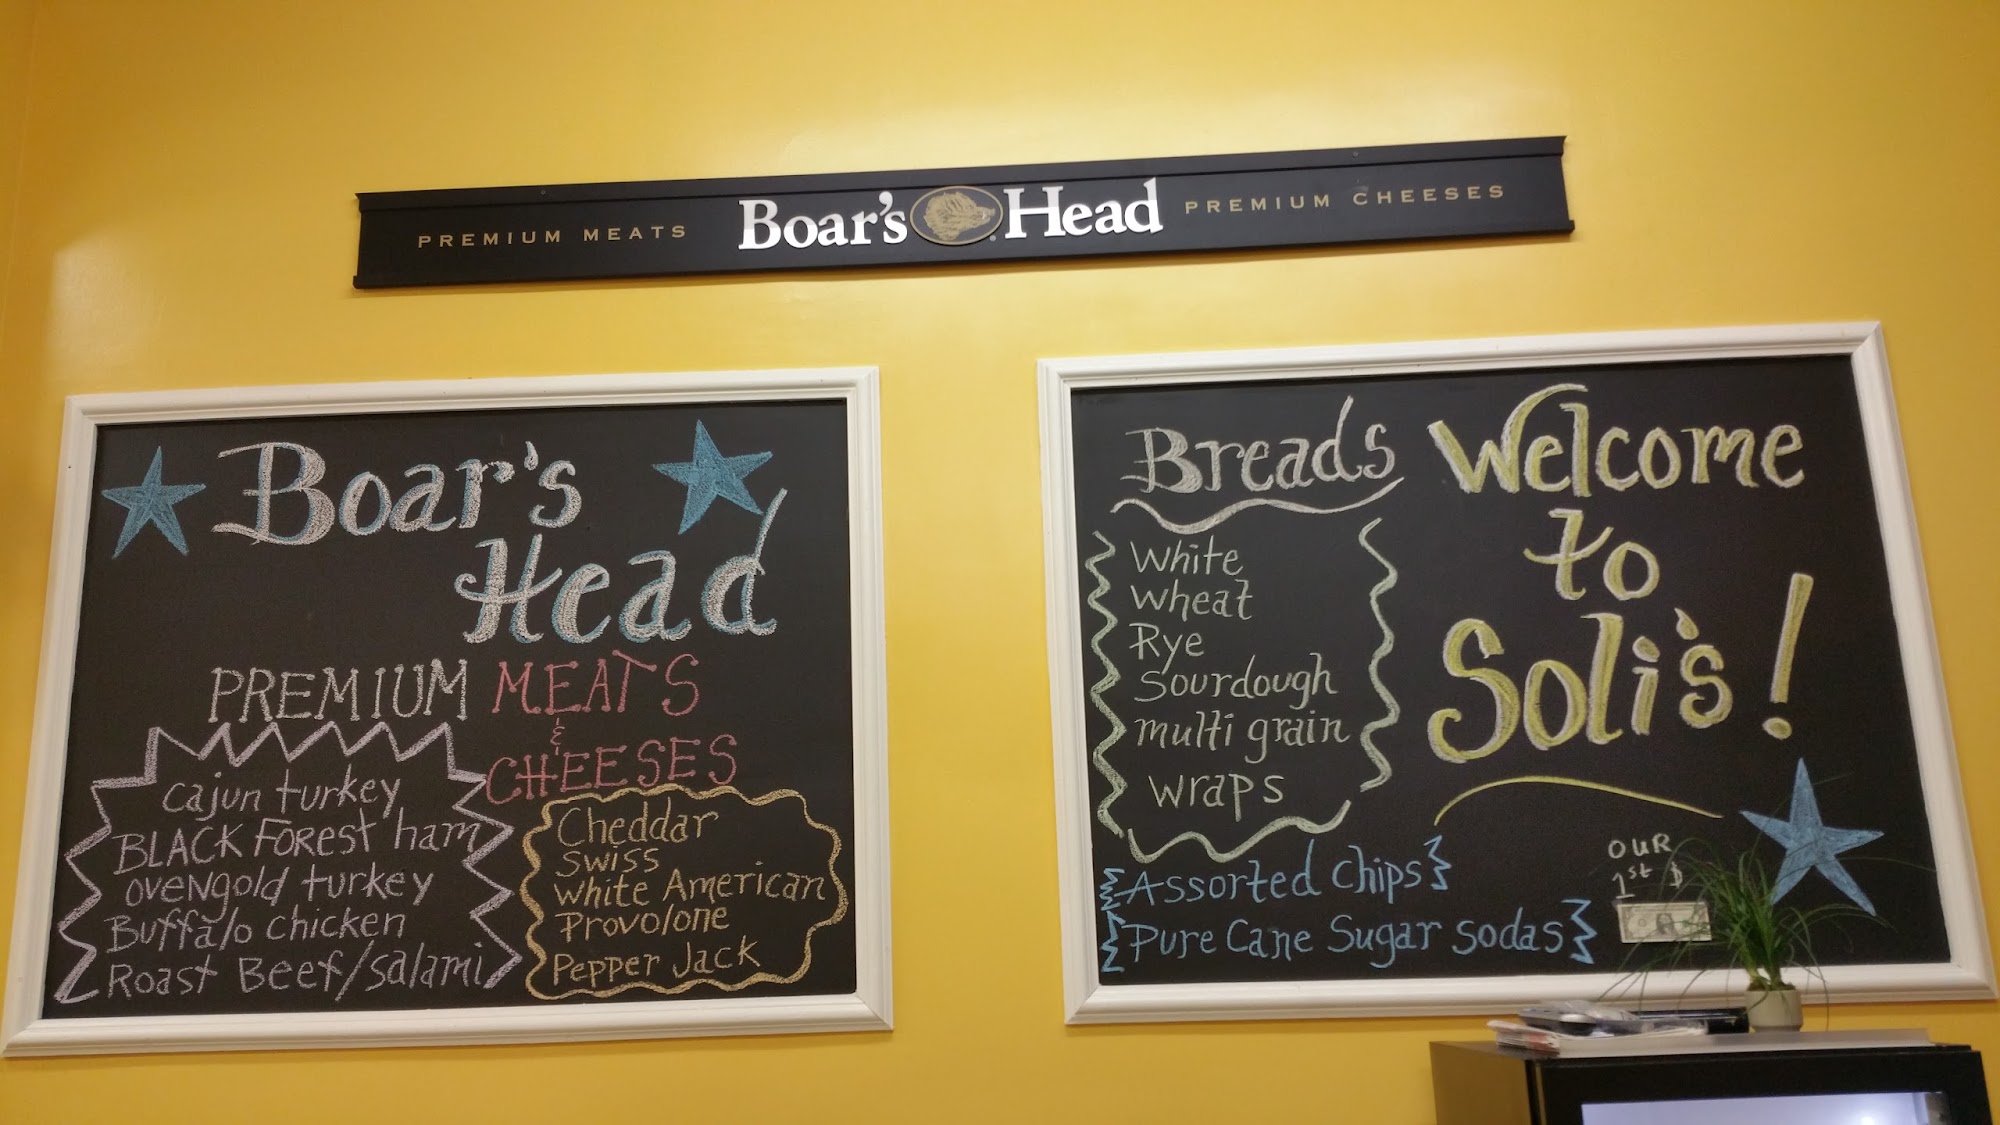 PREMIUM MEATS Boar's Head PREMIUM CHEESES
Boar's
Head
PREMIUM MEATS
&
CHEESES
cajun turkey
BLACK FOREST ham
ovengold turkey
Buffalo chicken
Roast Beef/salami
Cheddar
swiss
white American
Provolone
Pepper Jack
Breads
white
wheat
Rye
Sourdough
multi grain
wraps
Assorted chips
Pure Cane Sugar sodas
Welcome
to
Soli's!
OUR
1st $